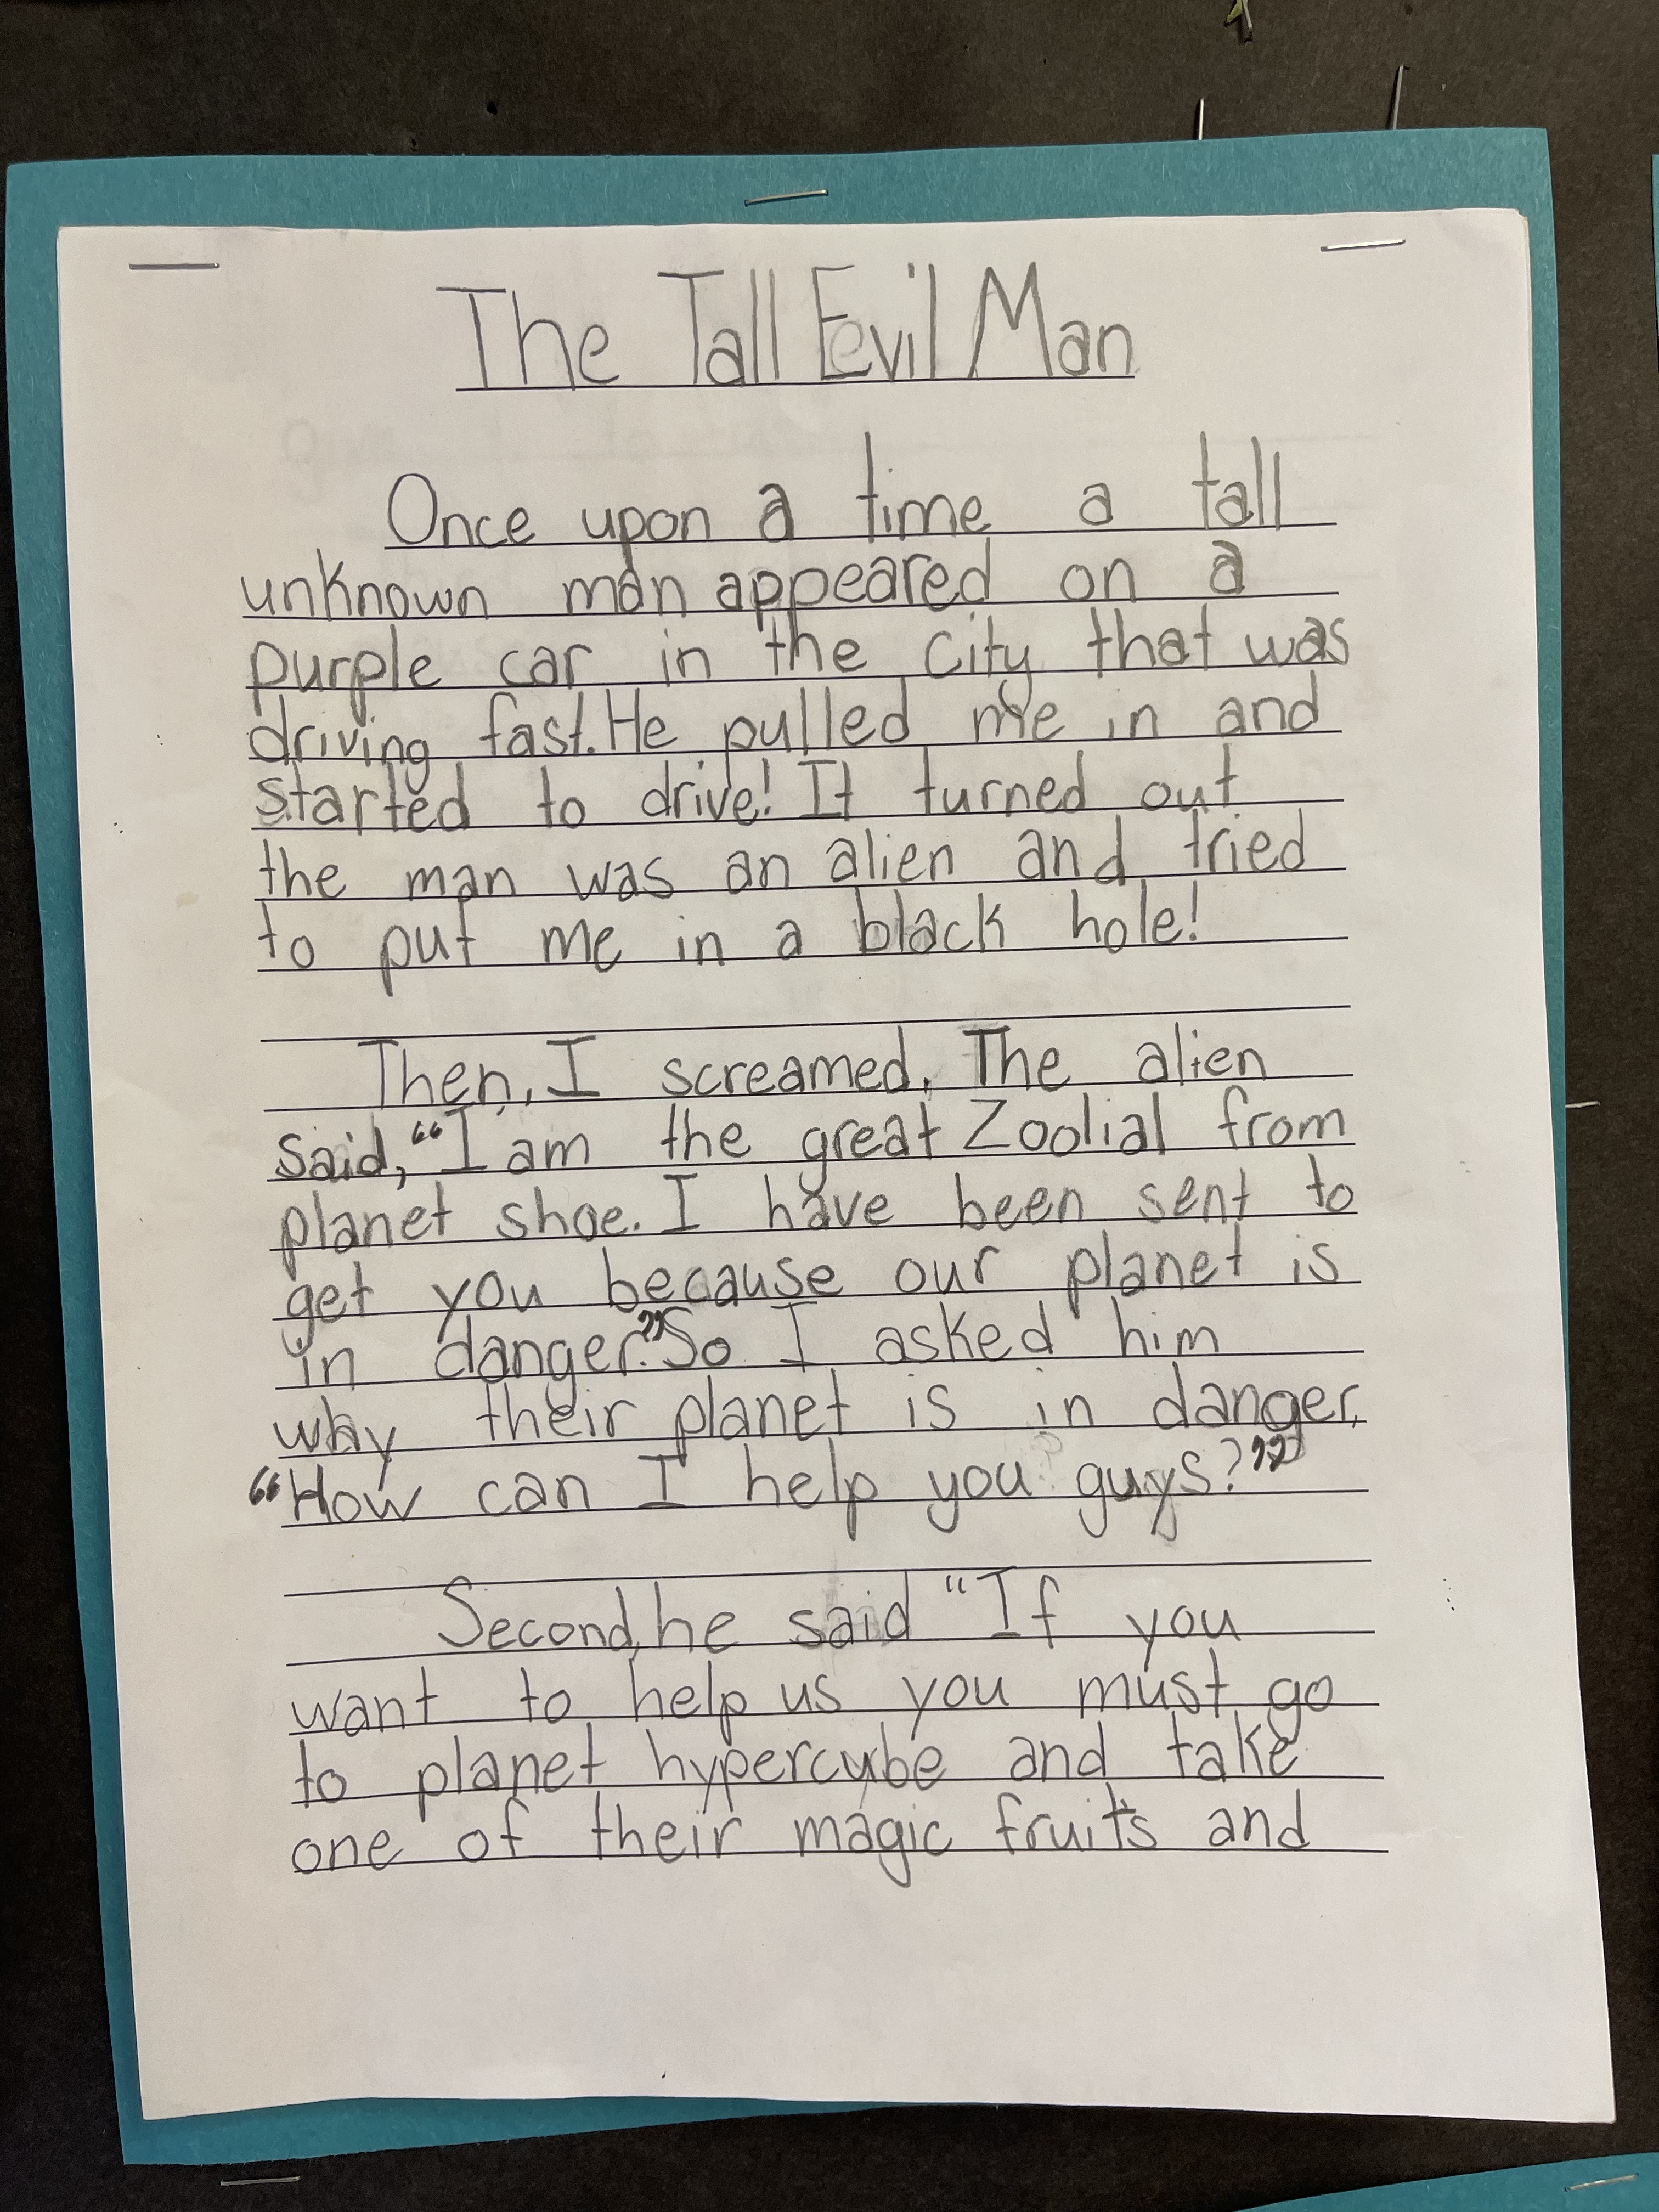 The Tall Evil Man
Once upon a time a tall
unknown man appeared on a
purple car in the city that was
driving fast. He pulled me in and
started to drive! It turned out
the man was an alien and tried
to put me in a black hole!
Then, I screamed. The alien
said, “I am the great Zoolial from
planet shoe. I have been sent to
get you because our planet is
in danger.” So I asked him
why their planet is in danger,
“How can I help you guys?”
Second, he said “If you
want to help us you must go
to planet hypercube and take
one of their magic fruits and